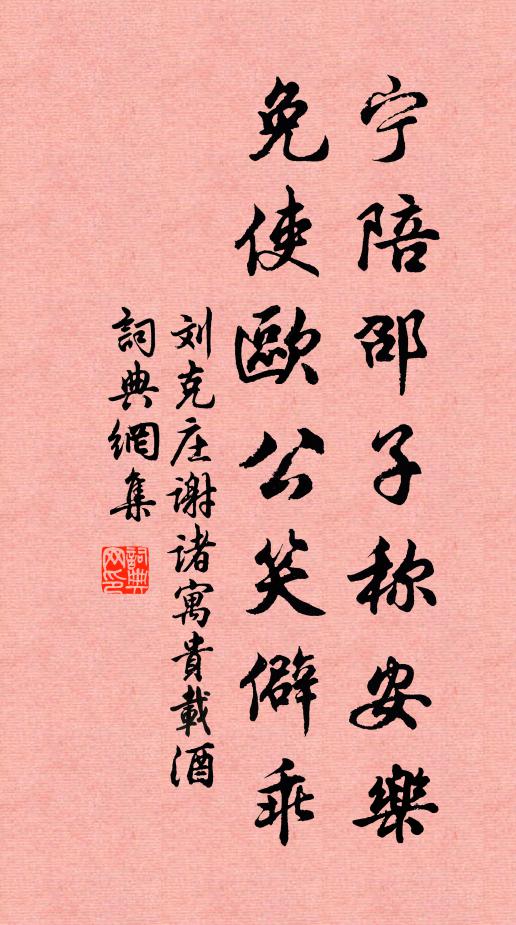 宁陪邵子称安樂
免使歐公笑僻乖
刘克庄谢诸寓貴載酒
詞典網集
詞典网印